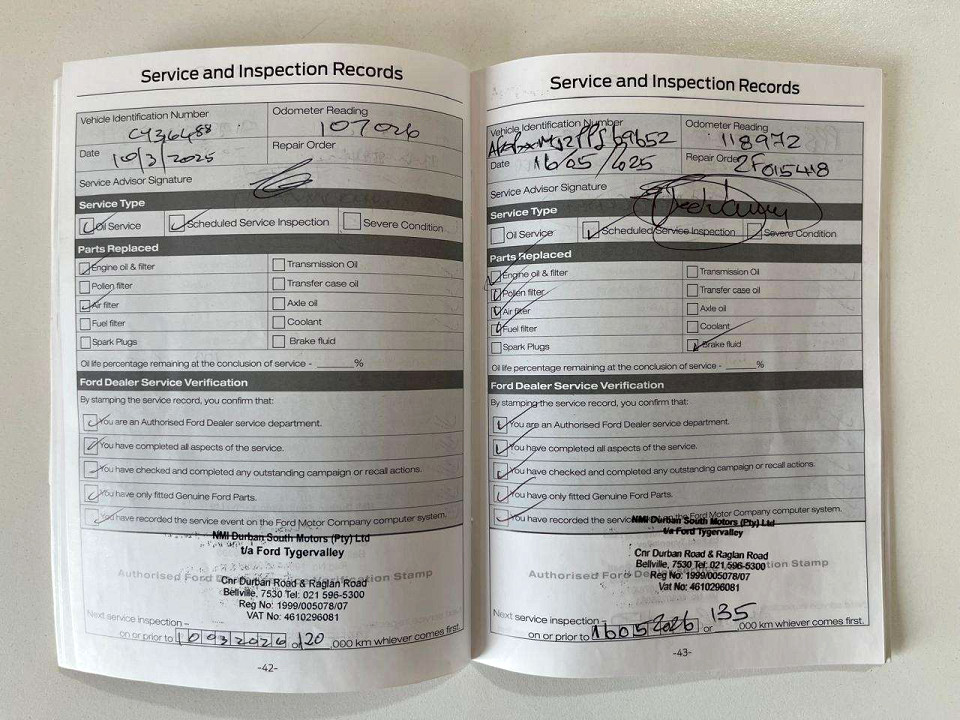 Service and Inspection Records
Vehicle Identification Number
CY36488
Odometer Reading
107026
Date 10/3/2025
Repair Order
Service Advisor Signature
Service Type
Oil Service
Scheduled Service Inspection
Severe Condition
Parts Replaced
Engine oil & filter
Transmission Oil
Pollen filter
Transfer case oil
Air filter
Axle oil
Fuel filter
Coolant
Spark Plugs
Brake fluid
Oil life percentage remaining at the conclusion of service - ______%
Ford Dealer Service Verification
By stamping the service record, you confirm that:
You are an Authorised Ford Dealer service department.
You have completed all aspects of the service.
You have checked and completed any outstanding campaign or recall actions.
You have only fitted Genuine Ford Parts.
You have recorded the service event on the Ford Motor Company computer system.
NMI Durban South Motors (Pty) Ltd
t/a Ford Tygervalley
Authorised Ford Dealer Service Verification Stamp
Cnr Durban Road & Raglan Road
Bellville, 7530 Tel: 021 596-5300
Reg No: 1999/005078/07
VAT No: 4610296081
Next service inspection –
on or prior to 10932026 or 120 ,000 km whiever comes first.
-42-
Service and Inspection Records
Vehicle Identification Number
Odometer Reading
118972
Date 16/05/2025
Repair Order
Service Advisor Signature
Service Type
Oil Service
Scheduled Service Inspection
Severe Condition
Parts Replaced
Engine oil & filter
Transmission Oil
Pollen filter
Transfer case oil
Air filter
Axle oil
Fuel filter
Coolant
Spark Plugs
Brake fluid
Oil life percentage remaining at the conclusion of service - ______%
Ford Dealer Service Verification
By stamping the service record, you confirm that:
You are an Authorised Ford Dealer service department.
You have completed all aspects of the service.
You have checked and completed any outstanding campaign or recall actions.
You have only fitted Genuine Ford Parts.
You have recorded the service on the Ford Motor Company computer system.
NMI Durban South Motors (Pty) Ltd
t/a Ford Tygervalley
Cnr Durban Road & Raglan Road
Authorised Ford Dealer Service Verification Stamp
Bellville, 7530 Tel: 021 596-5300
Reg No: 1999/005078/07
Vat No: 4610296081
Next service inspection –
on or prior to 16052026 or 135 ,000 km whiever comes first.
-43-